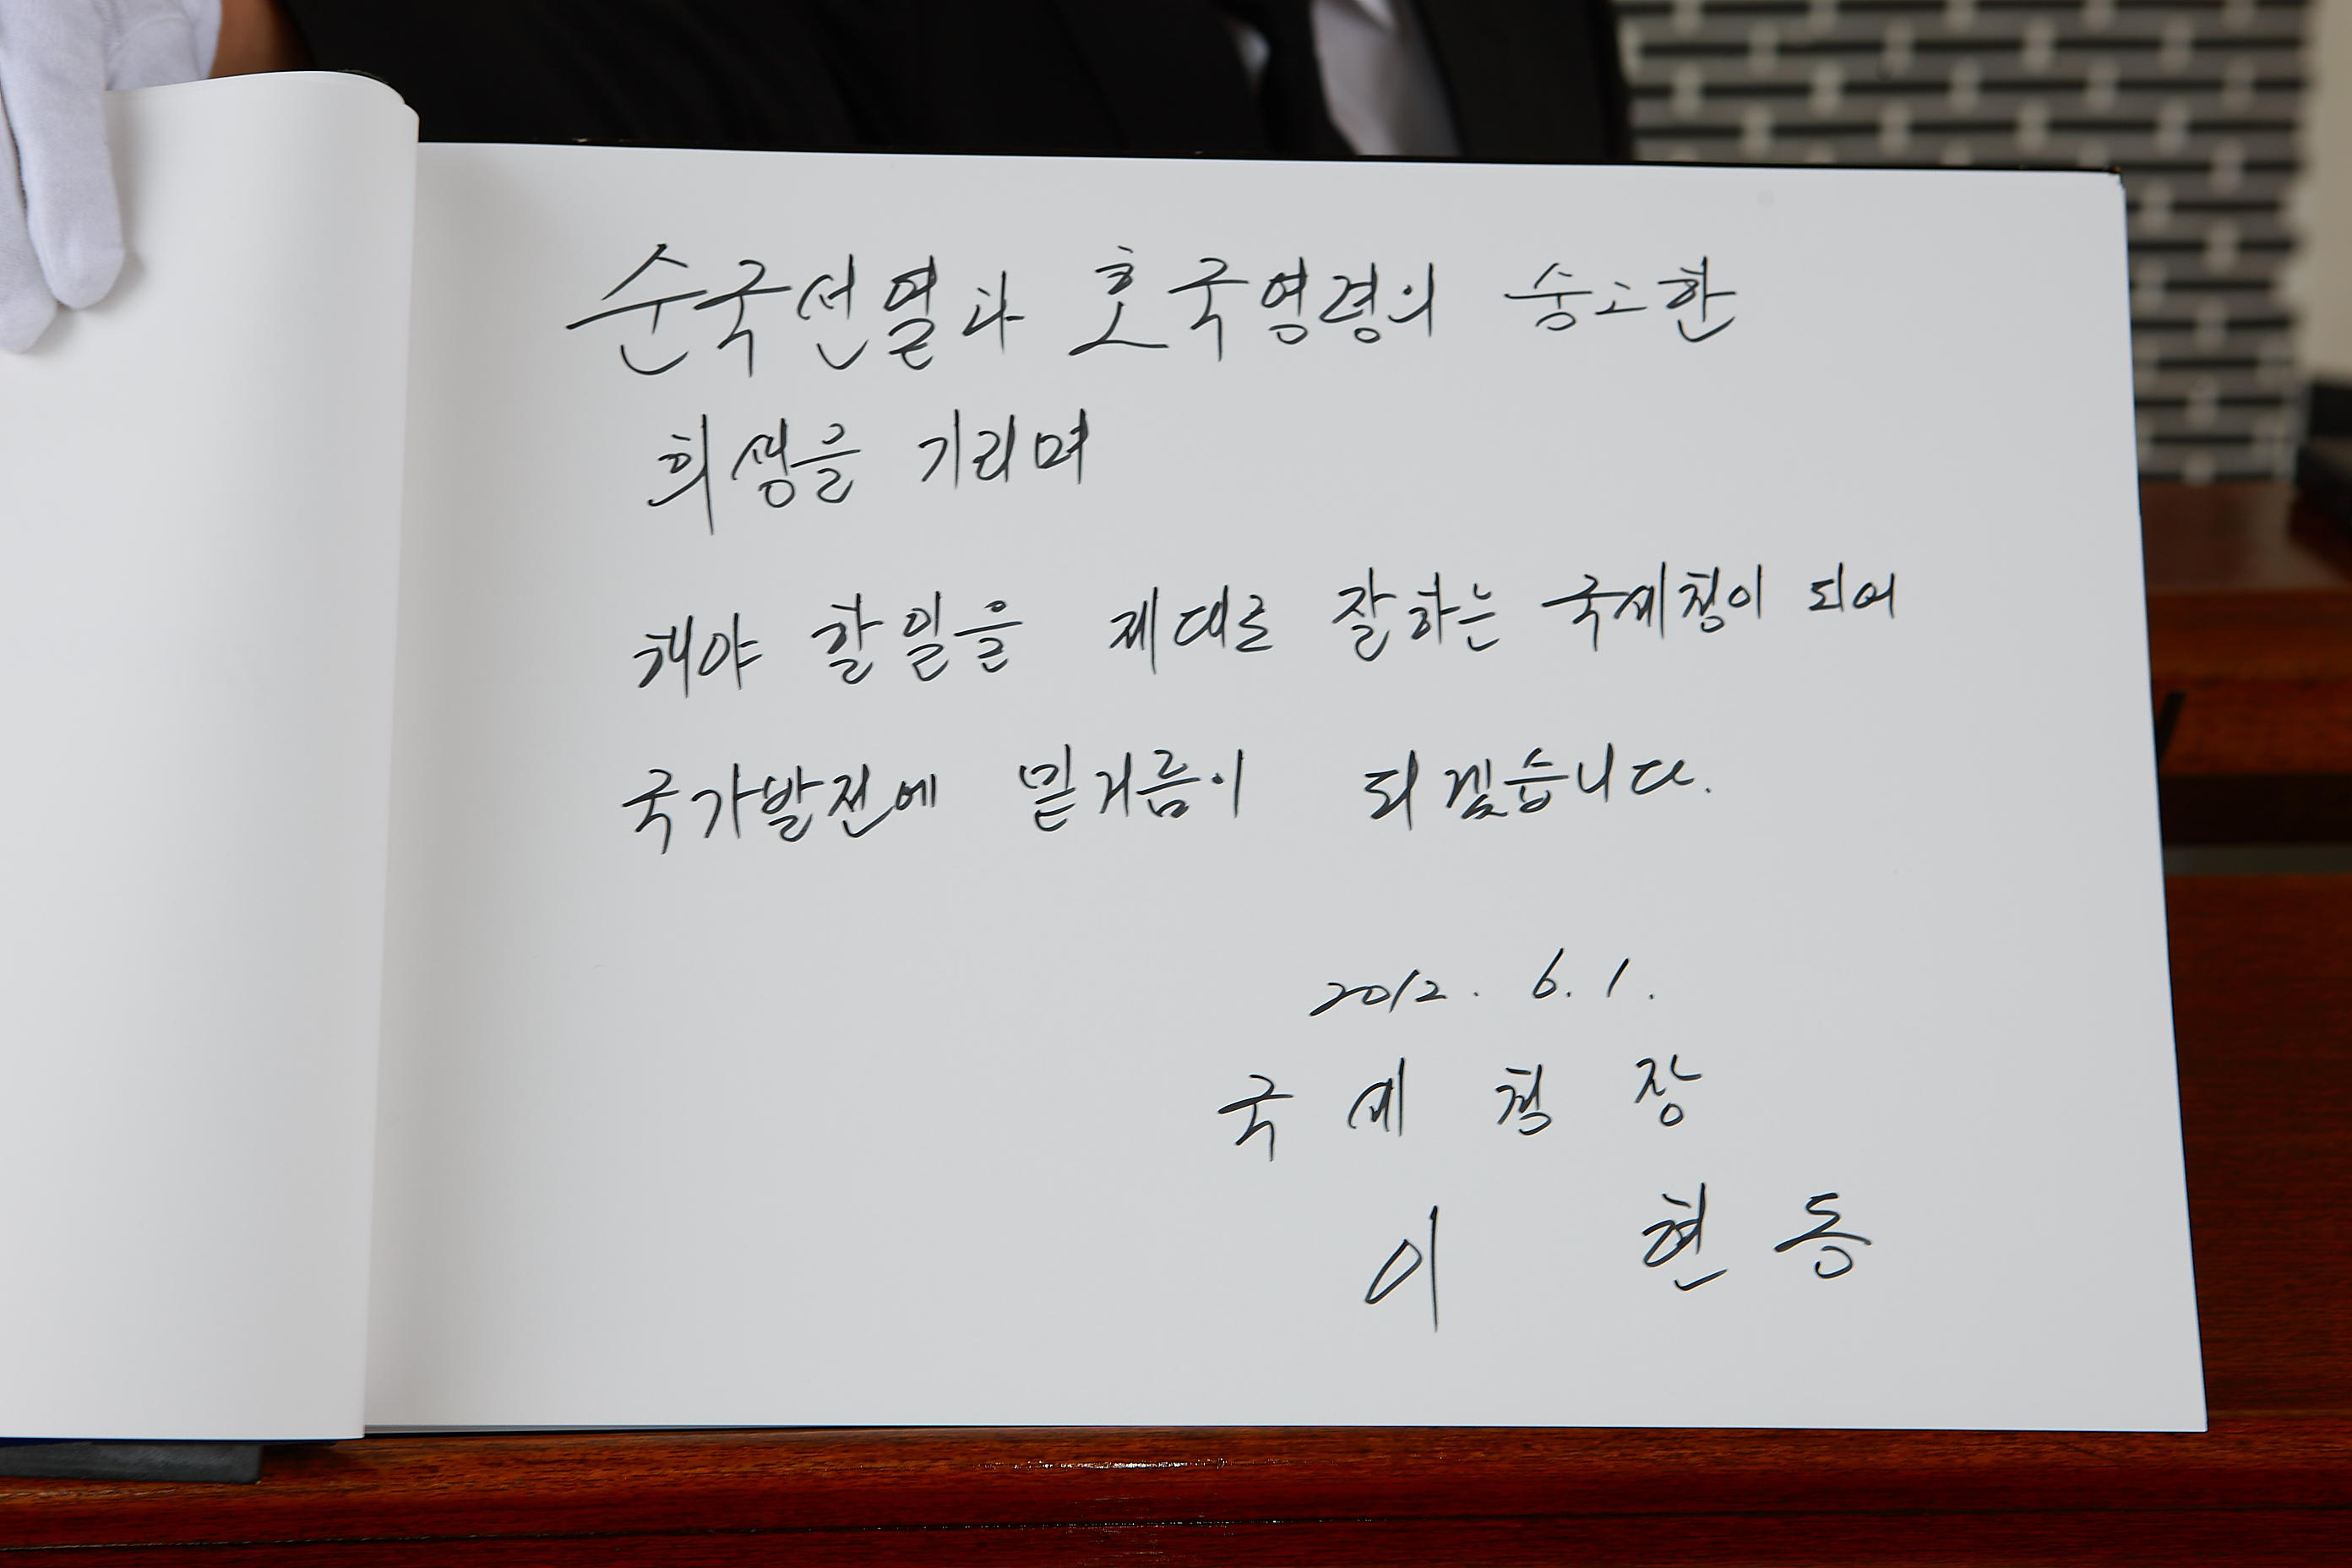 순국선열과 호국영령의 숭고한
희생을 기리며
해야 할일을 제대로 잘하는 국세청이 되어
국가발전에 밑거름이 되겠습니다.
2012. 6. 1.
국 세 청 장
이 현 동